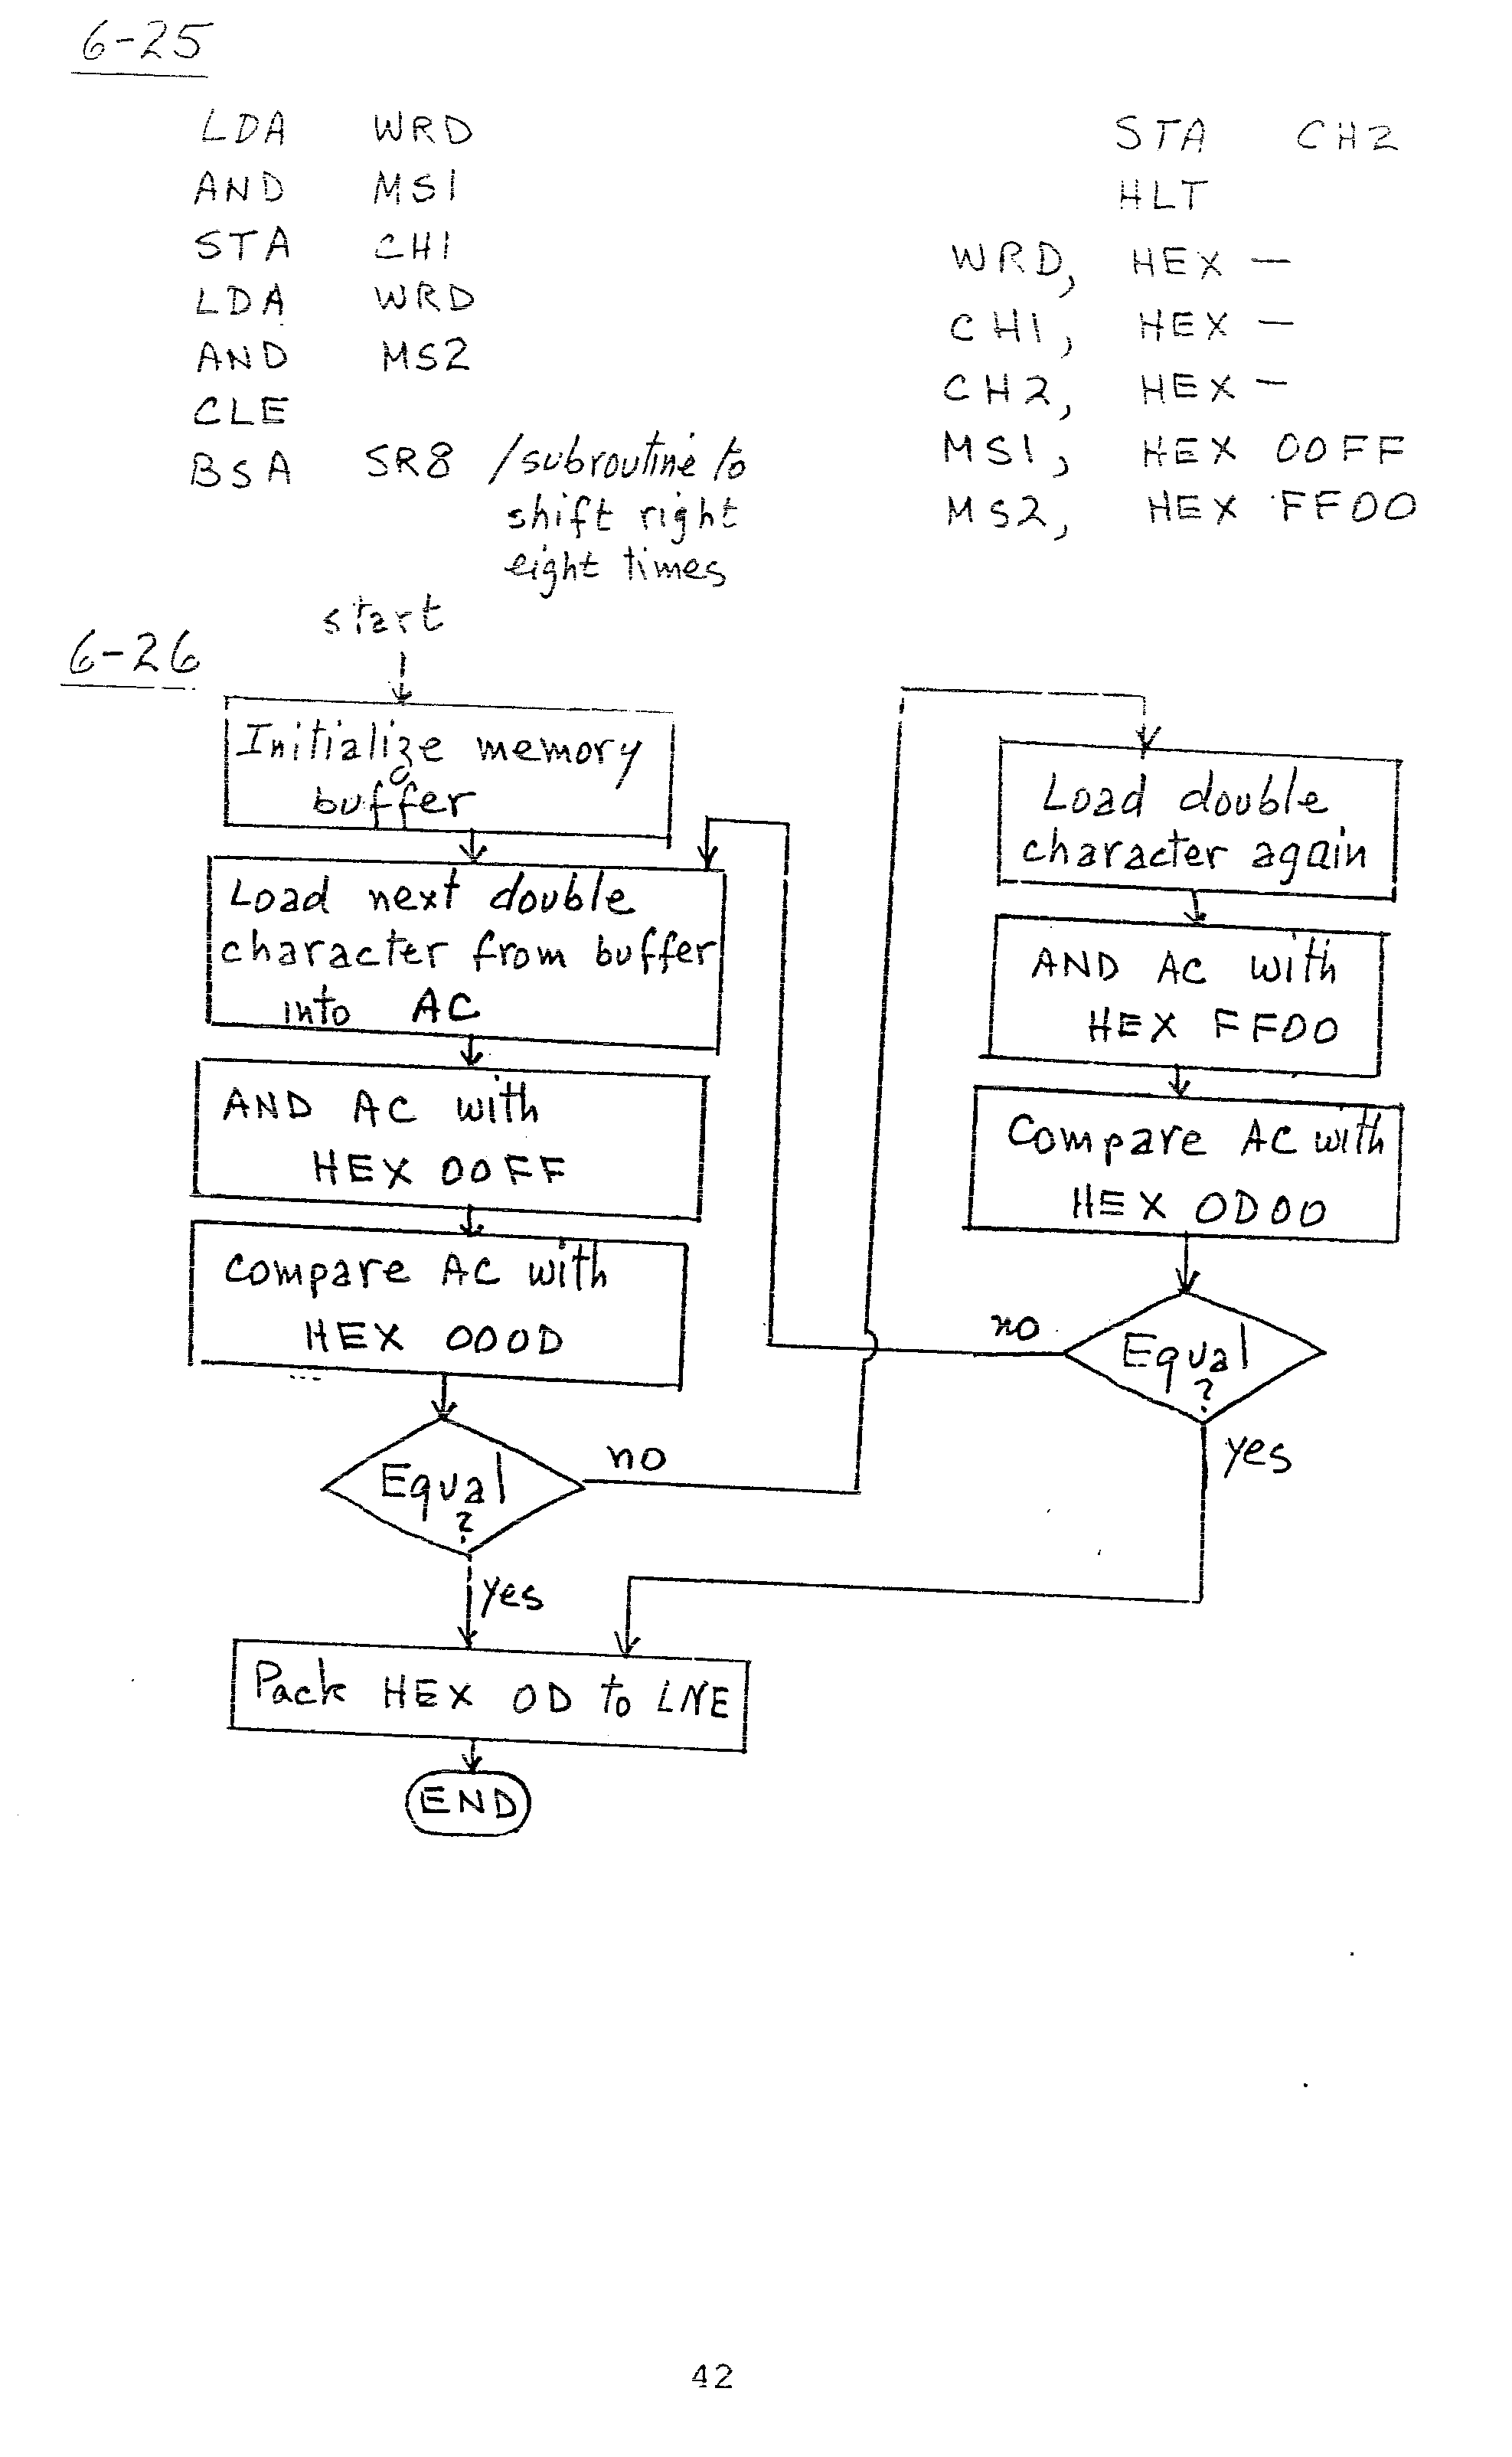 6-25
LDA WRD
AND MS1
STA CH1
LDA WRD
AND MS2
CLE
BSA SR8 /subroutine to
shift right
eight times
STA CH2
HLT
WRD, HEX —
CH1, HEX —
CH2, HEX —
MS1, HEX 00FF
MS2, HEX FF00
6-26
start
Initialize memory
buffer
Load next double
character from buffer
into AC
AND AC with
HEX 00FF
Compare AC with
HEX 000D
Equal
?
no
yes
Load double
character again
AND AC with
HEX FF00
Compare AC with
HEX 0D00
Equal
?
no
yes
Pack HEX 0D to LNE
END
42